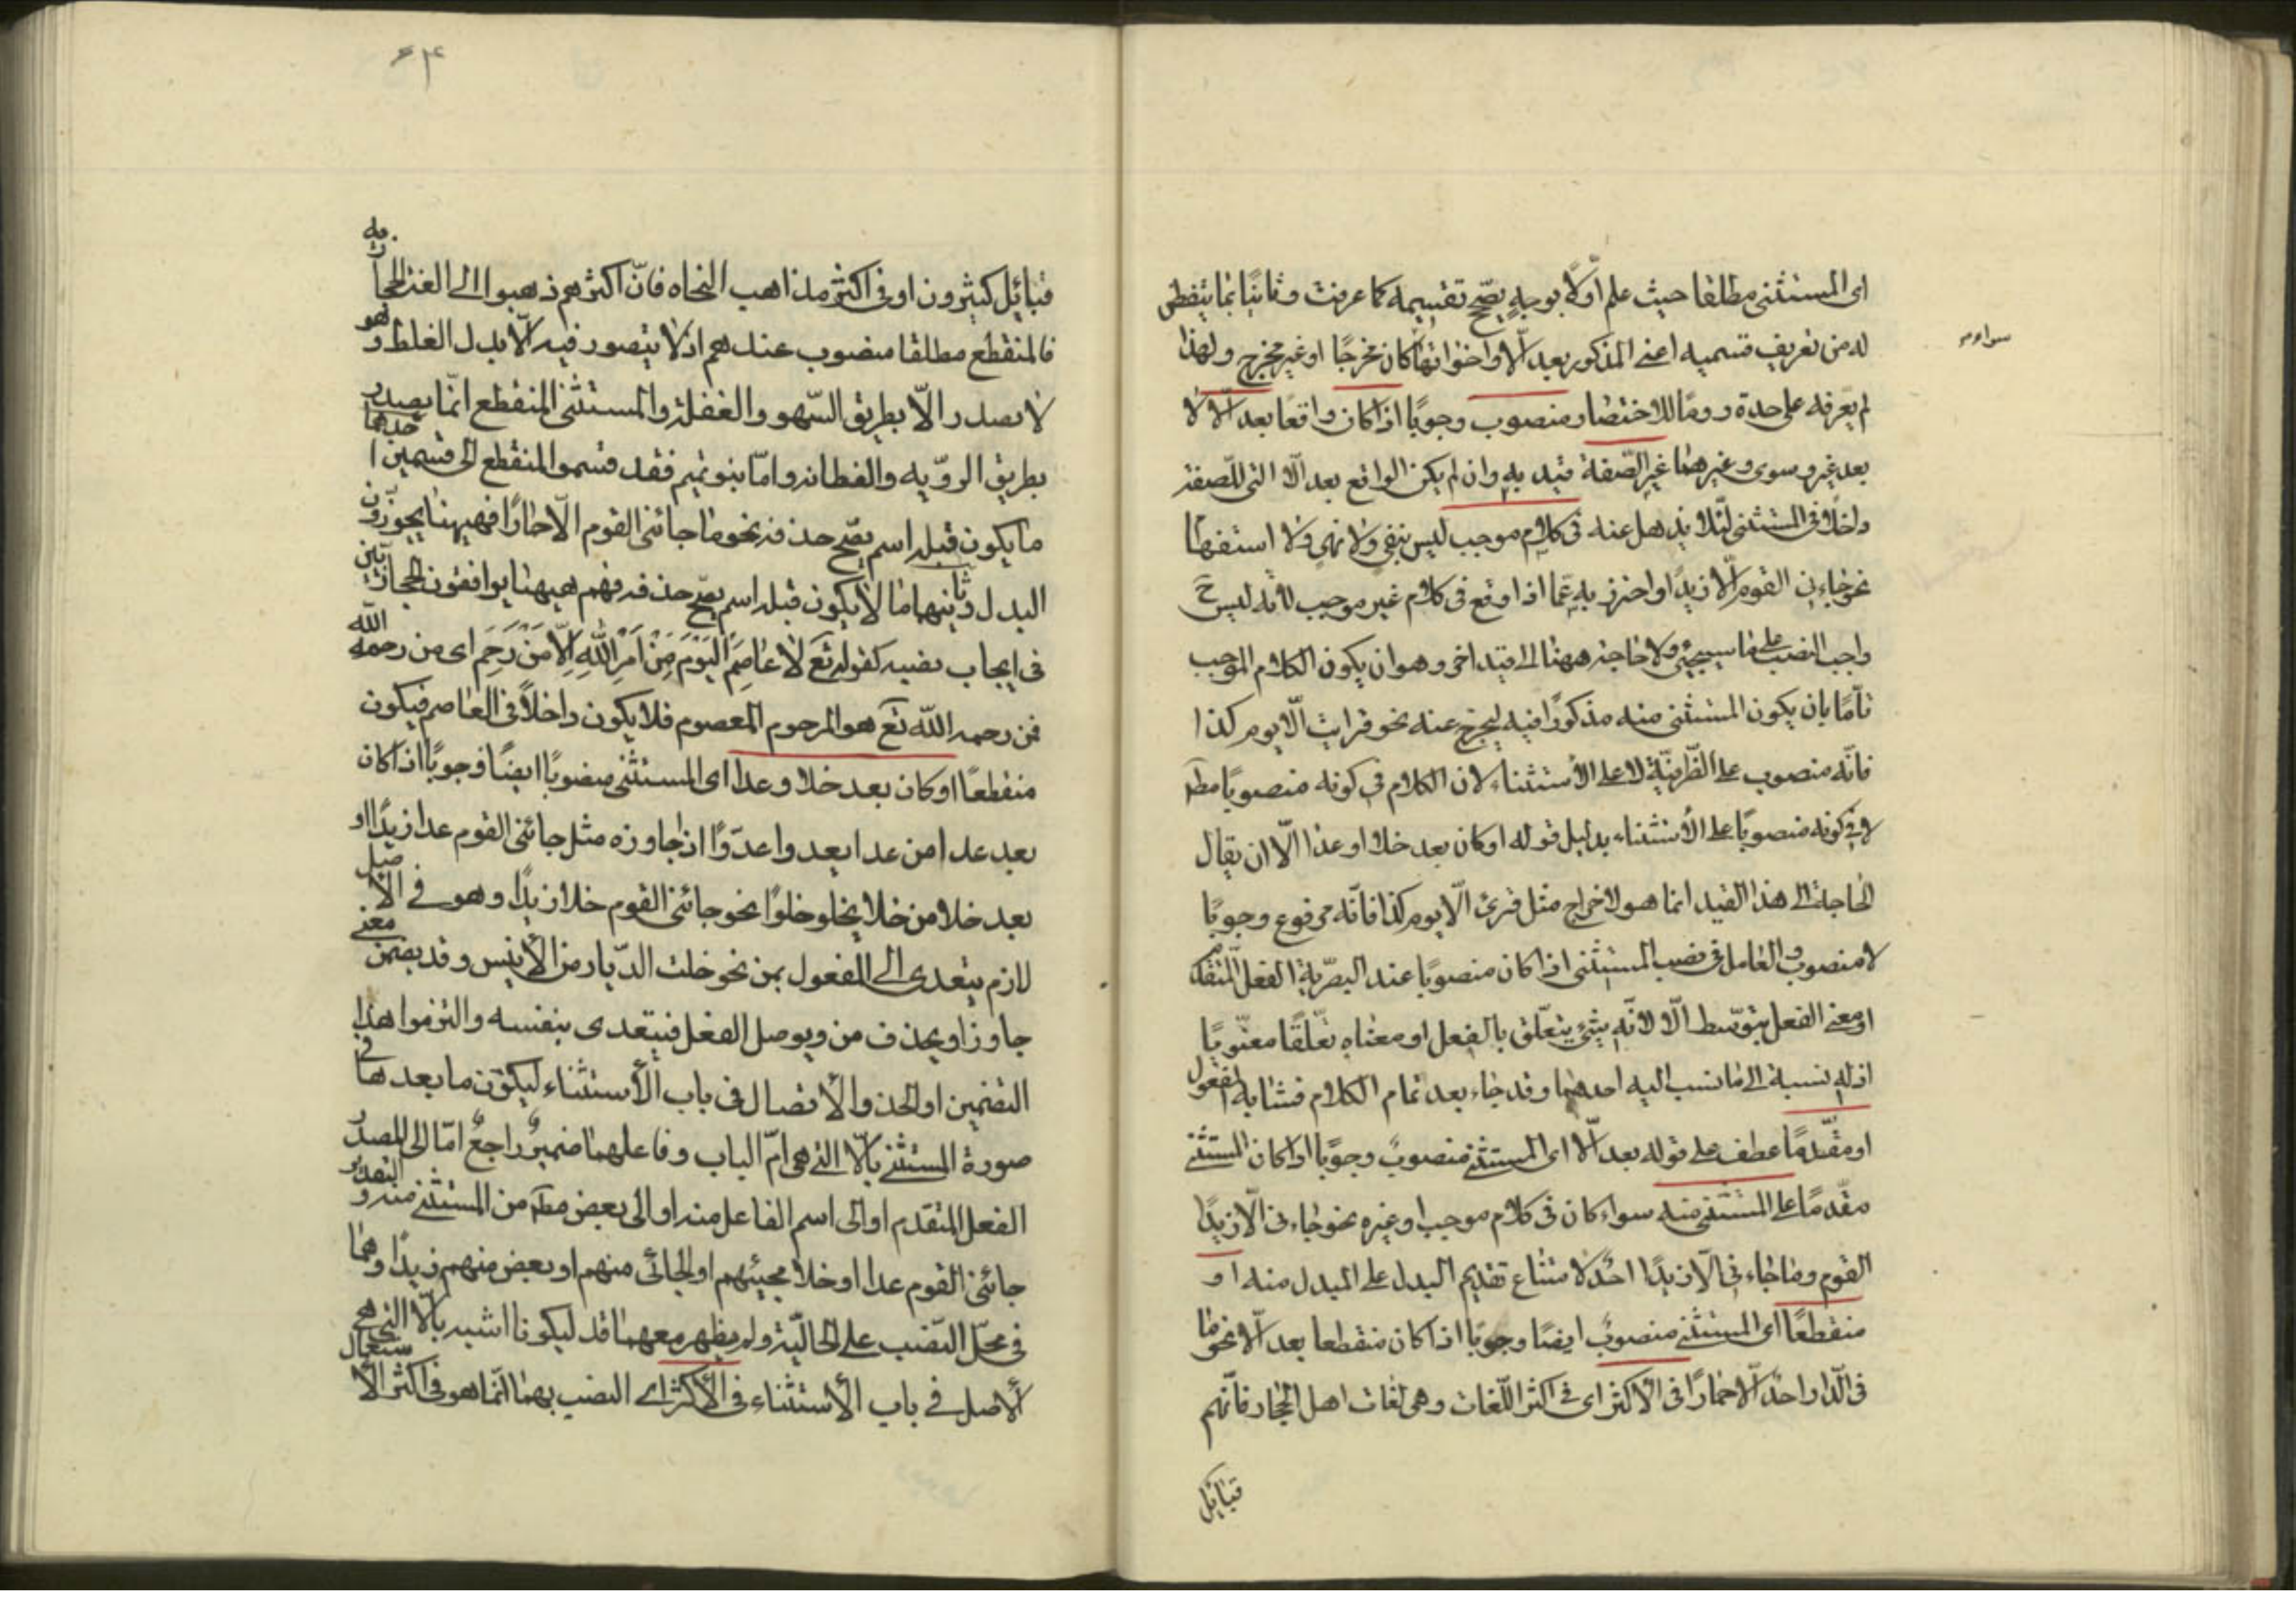 اى المستثنى مطلقا حيث علم اوّلا بوجهٍ يصّح تقسيمه كما عرفت وثانيًا بما يتفطن
له من تعريف قسميه اعنى المذكور بعد الّا واخواتها كان مخرجًا او غير مخرج ولهذا
سواء
لم يعّرفه على حدة روما للاختصار ومنصوب وجوبًا اذا كان واقعًا بعد الّا لا
بعد غير وسوى وغيرهما غير الصّفة قيد به وان لم يكن الواقع بعد الّا التى للصّفة
داخلًا فى المستثنى لئلا يذهل عنه فى كلام موجب ليس بنفى ولا نهى ولا استفهام
نحو جاءنى القوم الّا زيدًا واحترز به عّما اذا وقع فى كلام غير موجب لانّه ليس ح
واجب النصب على ما سيجئ ولا حاجة ههنا الى قيد اخر وهو ان يكون الكلام الموجب
تامّا بان يكون المستثنى منه مذكورًا فيه ليخرج عنه نحو قرات الّا يوم كذا
فانّه منصوب على الظّرفيّة لا على الأستثناء لان الكلام فى كونه منصوبًا مطلقا
لا فى كونه منصوبًا على الأستثناء بدليل قوله او كان بعد خلا او عدا الّا ان يقال
الحاجة الى هذا القيد انما هو لاخراج مثل قرئ الّا يوم كذا فانّه مرفوع وجوبًا
لا منصوب والعامل فى نصب المستثنى اذا كان منصوبًا عند البصريّة الفعل المتقدم
او معنى الفعل بتوّسط الّا لانّه شئ يتعلّق بالفعل او معناه تعلّقًا معنّويًا
اذ له نسبة الى ما نسب اليه احدهما وقد جاء بعد تمام الكلام فشابه المفعول
او مقّدمًا عطف على قوله بعد الّا اى المستثنى منصوبٌ وجوبًا اذا كان المستثنى
مقّدمًا على المستثنى منه سواء كان فى كلام موجب او غيره نحو جاءنى الّا زيدًا
القوم وما جاءنى الّا زيدًا احدٌ لامتناع تقديم البدل على المبدل منه او
منقطعًا اى المستثنى منصوبٌ ايضا وجوبًا اذا كان منقطعا بعد الّا نحو ما
فى الدّار احدٌ الّا حمارًا فى الاكثر اى فى اكثر اللّغات وهى لغات اهل الحجاز فانّهم
قبائل
قبائل كثيرون او فى اكثر مذاهب النحاه فانّ اكثرهم ذهبوا الى اللغة الحجازيه
فالمنقطع مطلقا منصوب عندهم اذ لا يتصور فيه الّا بدل الغلط وهو
لا يصدر الّا بطريق السّهو والغفلة والمستثنى المنقطع انّما يصدر
بطريق الروّيه والفطانه وامّا بنو تميم فقد قسموا المنقطع الى قسمين احدهما
ما يكون قبله اسم يصّح حذفه نحو ما جائنى القوم الّا حمارًا فهيهنا يجوّزون
البدل وثانيهما ما لا يكون قبله اسم يصّح حذفه فهم هيهنا يوافقون الحجازيّين
فى ايجاب نصبه كقوله تع لا عاصم اليوم من امر الله الّا من رحم اى من رحمه الله
فمن رحمه الله تع هو المرحوم المعصوم فلا يكون داخلًا فى العاصم فيكون
منقطعًا او كان بعد خلا وعدا اى المستثنى منصوبًا ايضًا وجوبًا اذا كان
بعد عدا من عدا يعدوا عدوّا اذا جاوزه مثل جائنى القوم عدا زيدًا او
بعد خلا من خلا يخلو خلوًا نحو جائنى القوم خلا زيدًا وهو فى الاصل
لازم يتعدى الى المفعول بمن نحو خلت الدّيار من الأنيس وقد يضمن معنى
جاوز او يحذف من ويوصل الفعل فيتعدى بنفسه والتزموا هذا
التضمين او الحذف والأتصال فى باب الأستثناء ليكون ما بعدها فى
صورة المستثنى بالّا التى هى امّ الباب وفاعلهما ضميرٌ راجعٌ امّا الى المصدر
الفعل المتقدم او الى اسم الفاعل منه او الى بعض مطلق من المستثنى منه والتقدير
جائنى القوم عدا او خلا مجيئهم او الجائى منهم او بعض منهم زيدًا وهما
فى محلّ النّصب على الحاليّة ولم يظهر معهما قد ليكونا اشبه بالّا التى هى
الأصل فى باب الأستثناء فى الأكثر اى النصب بهما انّما هو فى اكثر الأستعمال